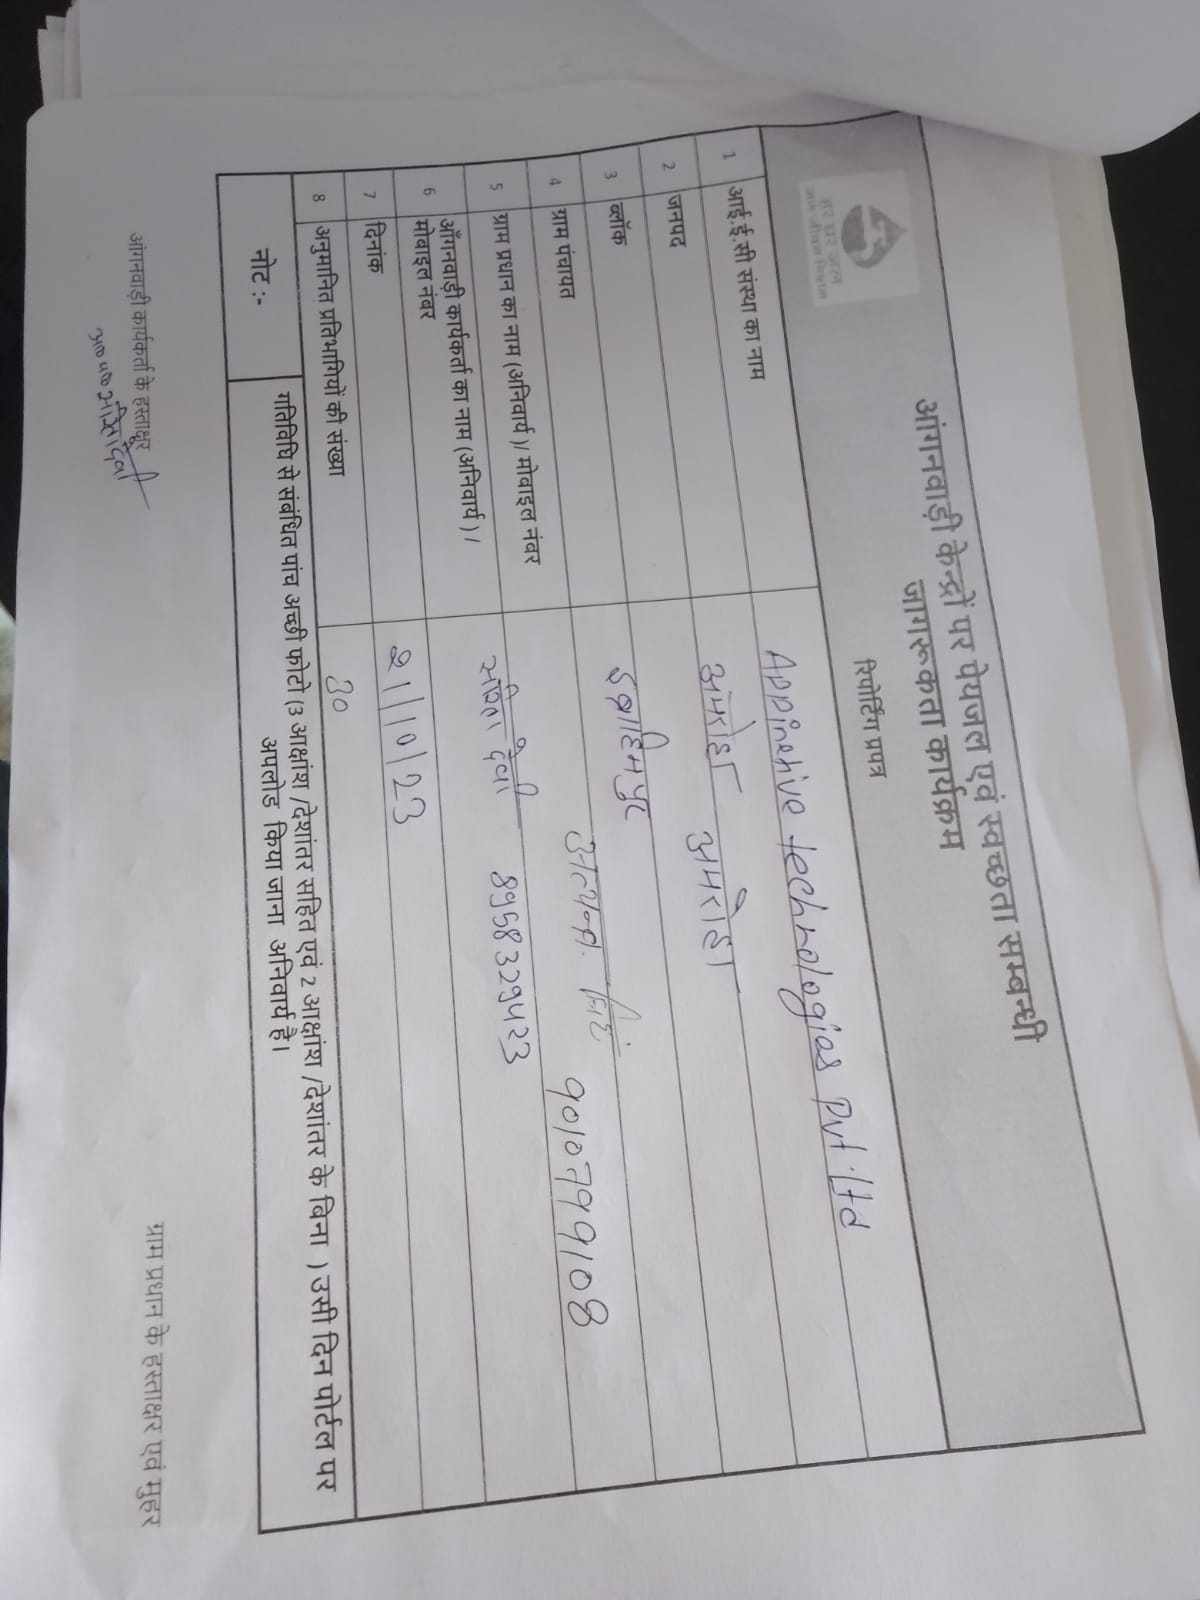 हर घर जल
जल जीवन मिशन
आंगनवाड़ी केन्द्रों पर पेयजल एवं स्वच्छता सम्बन्धी
जागरूकता कार्यक्रम
रिपोर्टिंग प्रपत्र
1 आई.ई.सी संस्था का नाम Appinehive technologies Pvt. Ltd
2 जनपद अमरोहा अमरोहा
3 ब्लॉक इब्राहिमपुर
4 ग्राम पंचायत
5 ग्राम प्रधान का नाम (अनिवार्य)/ मोबाइल नंबर 9010799108
6 आँगनवाड़ी कार्यकर्ता का नाम (अनिवार्य) / देवी 8958329423
मोबाइल नंबर
7 दिनांक 21/10/23
8 अनुमानित प्रतिभागियों की संख्या 30
नोट :- गतिविधि से संबंधित पांच अच्छी फोटो (3 आक्षांश /देशांतर सहित एवं 2 आक्षांश /देशांतर के बिना ) उसी दिन पोर्टल पर
अपलोड किया जाना अनिवार्य है।
आंगनवाड़ी कार्यकर्ता के हस्ताक्षर ग्राम प्रधान के हस्ताक्षर एवं मुहर